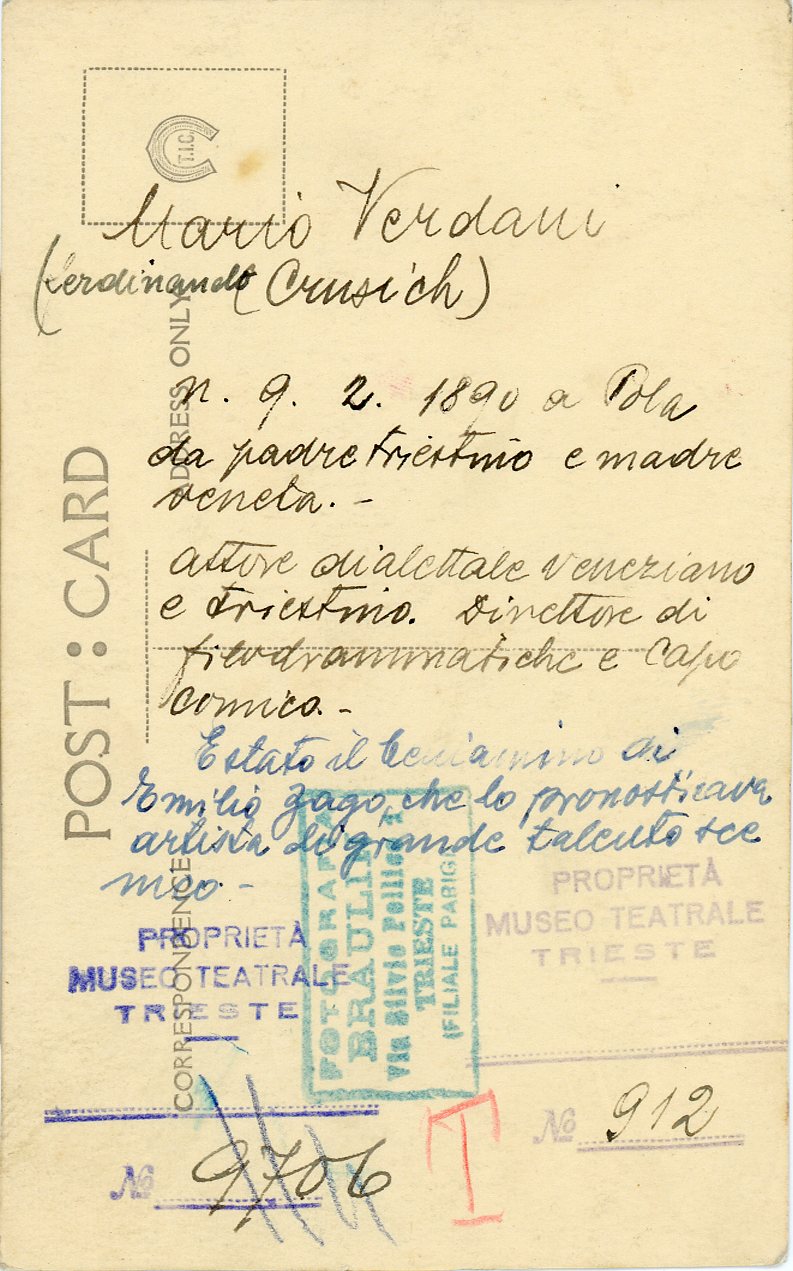 T.I.C.
Mario Verdani
(ferdinando (Crusich)
n. 9. 2. 1890 a Pola
da padre triestino e madre
veneta. -
attore dialettale veneziano
e triestino. Direttore di
filodrammatiche e Capo
comico. -
E stato il beniamino di
Emilio Zago, che lo pronosticava
artista di grande talento sce
nico -
POST : CARD
ADDRESS ONLY
CORRESPONDENCE
FOTOGRAFIA
BRAULIN
Via Silvio Pellico
TRIESTE
(FILIALE PARIGI
PROPRIETÀ
MUSEO TEATRALE
TRIESTE
PROPRIETÀ
MUSEO TEATRALE
TRIESTE
No 912
No 9706
T